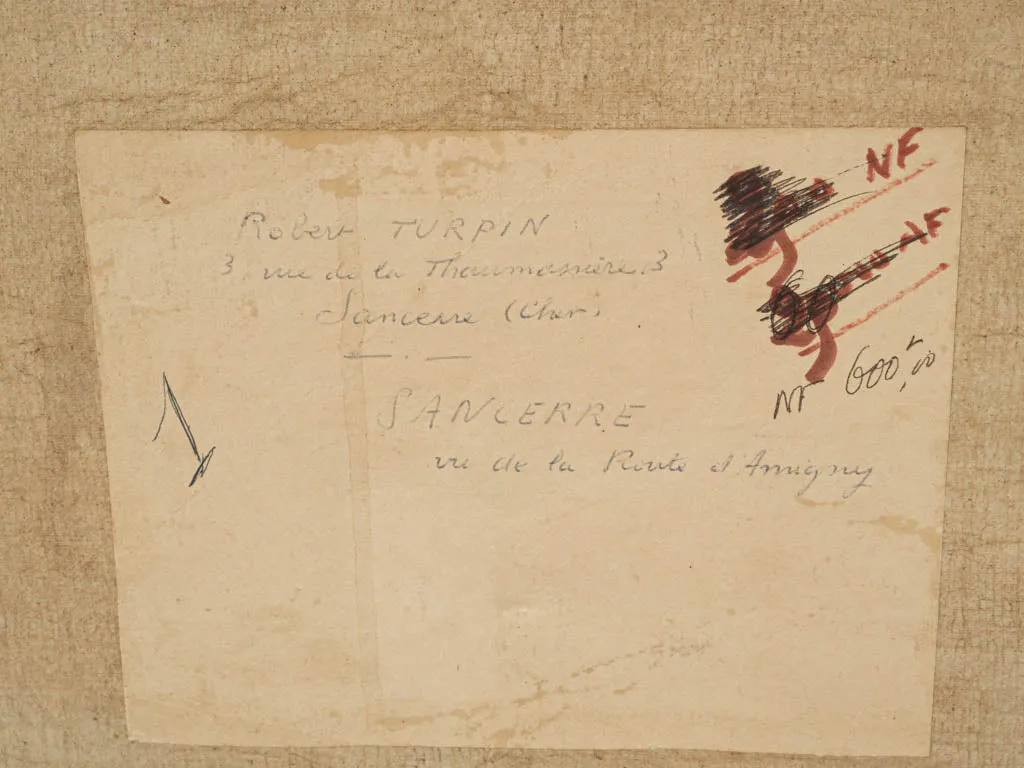 NF
Robert TURPIN
NF
3 rue de la Thaumassière 3
Sancerre (Cher)
60
NF 600F,00
SANCERRE
vu de la Route d'Amigny